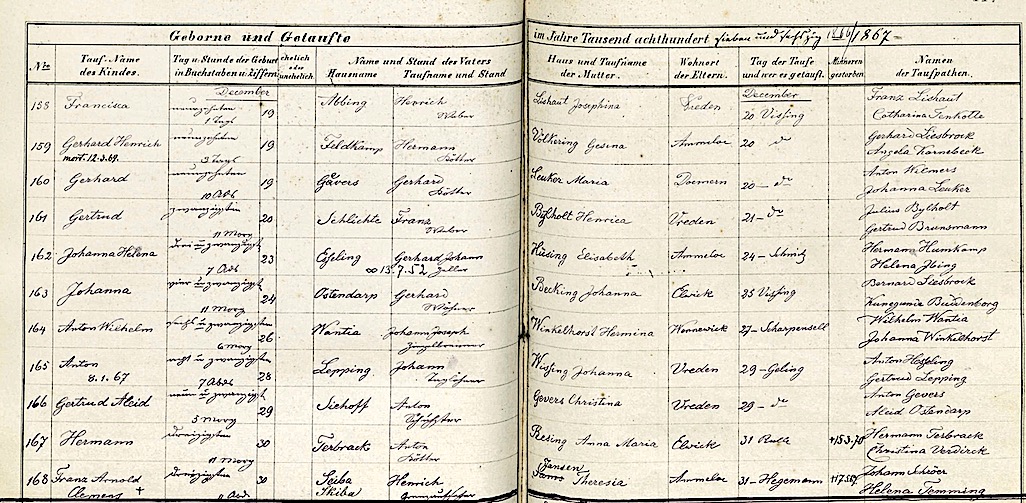 Geborne und Getaufte im Jahre Tausend achthundert sieben und sechszig 1867
Nro Tauf-Name des Kindes. Tag u. Stunde der Geburt in Buchstaben u. Ziffern ehelich oder unehelich. Name und Stand des Vaters Hausname Taufname und Stand Haus und Taufname der Mutter. Wohnort der Eltern. Tag der Taufe und wer es getauft. Namen der Taufpathen.
December December
158 Francisca neunzehnten 19 Abbing Henrich Weber Lishaut Josephina Vreden 20 Vissing Franz Lishaut
Catharina Tenhotte
159 Gerhard Henrich neunzehnten 19 Feldkamp Hermann Kötter Völkering Gesina Ammeloe 20 do Gerhard Liesbrock
mort. 12.3.69. Angela Karnebeck
160 Gerhard neunzehnten 19 Gevers Gerhard Kötter Leuker Maria Doemern 20 - do Anton Wilmers
Johanna Leuker
161 Gertrud zwanzigsten 20 Schlichte Franz Weber Bylholt Henrica Vreden 21 - do Julius Bylholt
Gertrud Brunsmann
162 Johanna Helena drei u zwanzigst 23 Esseling Gerhard Johann Zeller Hiesing Elisabeth Ammeloe 24 - Schmitz Hermann Humkamp
∞ 13.7.52 Helena Ibing
163 Johanna vier u zwanzigst 24 Ostendarp Gerhard Becking Johanna Elwick 25 Vissing Bernard Liesbrock
Kunegunda Buddenborg
164 Anton Wilhelm sechs u zwanzigst 26 Wantia Johann Joseph Winkelhorst Hermina Wennewick 27 - Scharpensell Wilhelm Wantia
Johanna Winkelhorst
165 Anton acht u zwanzigsten 28 Lepping Johann Wissing Johanna Vreden 29 - Geling Anton Hesseling
8.1.67 Gertrud Lepping
166 Gertrud Aleid neun u zwanzigst 29 Siehoff Anton Gevers Christina Vreden 29 - do Anton Gevers
Aleid Ostendarp
167 Hermann dreizigsten 30 Terbrack Anton Kötter Resing Anna Maria Elwick 31 +15.3.70 Hermann Terbrack
Christina Verdirck
168 Franz Arnold dreizigsten 30 Seiba Henrich Jansen Theresia Ammeloe 31 - Hegemann Johann Schröer
Clemens + Skiba Helena Temming